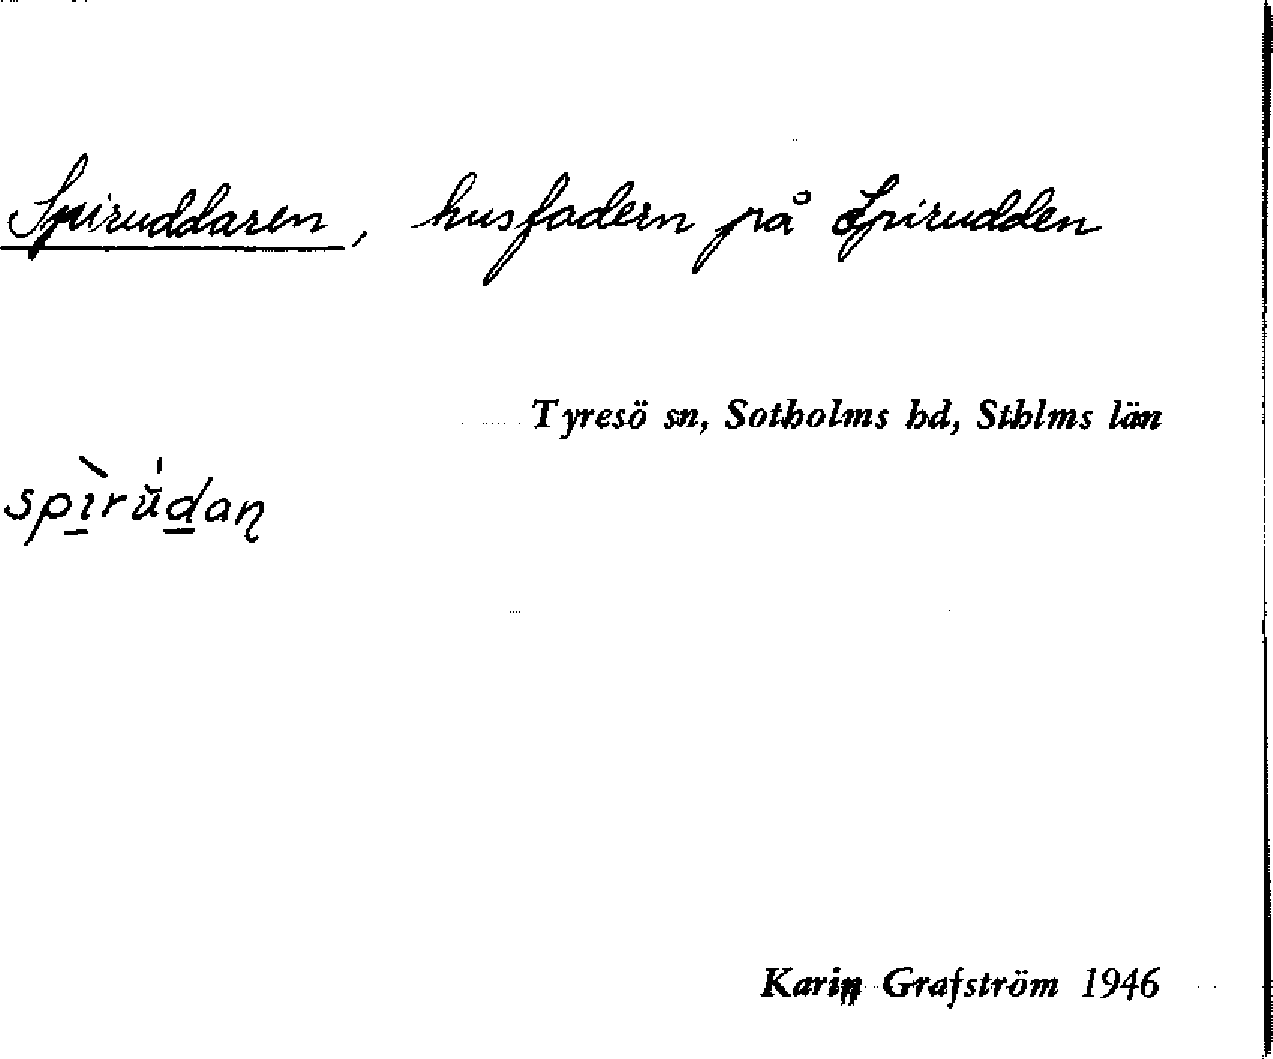 Spiruddaren, husfadern på Spirudden
Tyresö sn, Sotholms hd, Sthlms län
spìrŭ̍daɳ
Karin Grafström 1946